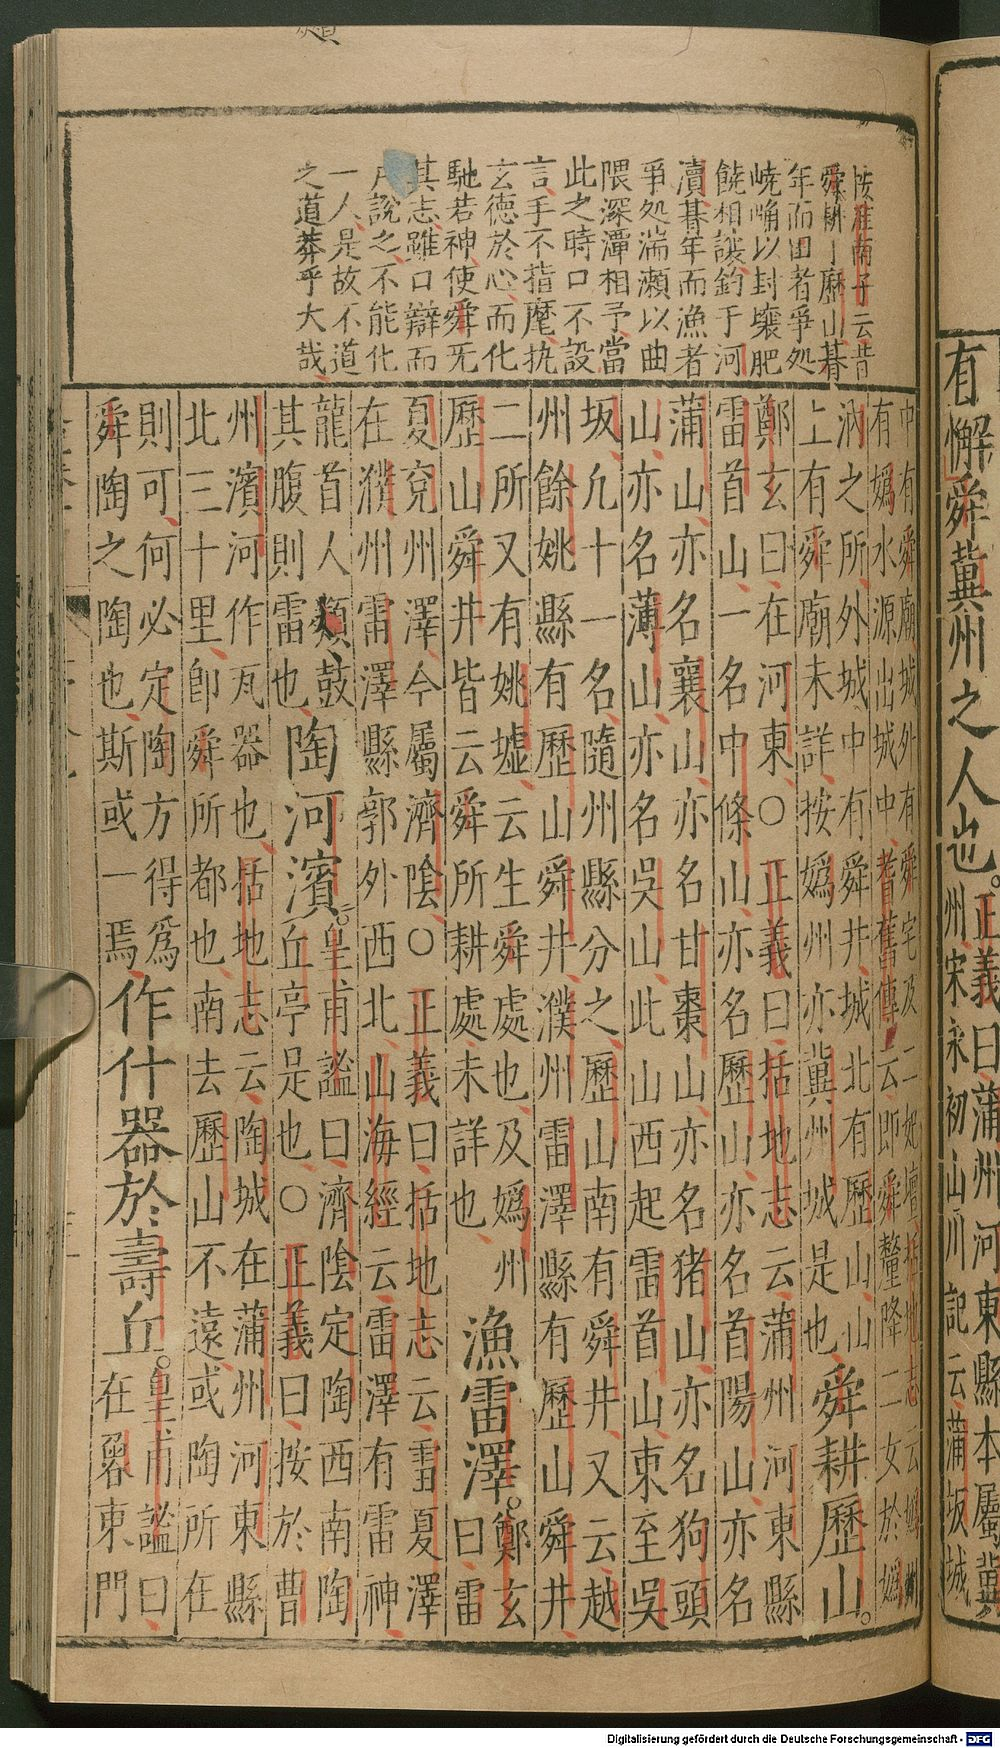 有懈舜冀州之人也。
正義曰蒲州河東縣本屬冀
州宋永初山川記云蒲坂城
按淮南子云昔
舜耕于歷山朞
年而田者爭処
嶢崅以封壤肥
饒相讓釣于河
濱朞年而漁者
爭処湍瀬以曲
隈深潭相予當
此之時口不設
言手不指麾执
玄德於心而化
馳若神使舜旡
其志雖口辯而
戸說之不能化
一人是故不道
之道莽乎大哉
中有舜廟城外有舜宅及二妃壇括地志云嬀州
有嬀水源出城中耆舊傳云即舜釐降二女於嬀
汭之所外城中有舜井城北有歷山山
上有舜廟未詳按嬀州亦冀州城是也
舜耕歷山。
鄭玄曰在河東○正義曰括地志云蒲州河東縣
雷首山一名中條山亦名歷山亦名首陽山亦名
蒲山亦名襄山亦名甘棗山亦名猪山亦名狗頭
山亦名薄山亦名吳山此山西起雷首山東至吳
坂凢十一名隨州縣分之歷山南有舜井又云越
州餘姚縣有歷山舜井濮州雷澤縣有歷山舜井
二所又有姚墟云生舜處也及嬀州
歷山舜井皆云舜所耕處未詳也
漁雷澤。
鄭玄
曰雷
夏兗州澤今屬濟陰○正義曰括地志云雷夏澤
在濮州雷澤縣郭外西北山海經云雷澤有雷神
龍首人頰鼓
其腹則雷也
陶河濱。
皇甫謐曰濟陰定陶西南陶
丘亭是也○正義曰按於曹
州濱河作瓦器也括地志云陶城在蒲州河東縣
北三十里卽舜所都也南去歷山不遠或陶所在
則可何必定陶方得爲
舜陶之陶也斯或一焉
作什器於壽丘。
皇甫謐曰
在魯東門
Digitalisierung gefördert durch die Deutsche Forschungsgemeinschaft - DFG